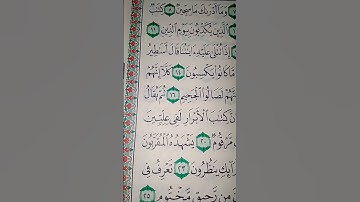 وَمَآ أَدْرَىٰكَ مَا سِجِّينٌ ٨ كِتَٰبٌ
ٱلَّذِينَ يُكَذِّبُونَ بِيَوْمِ ٱلدِّينِ ١١
إِذَا تُتْلَىٰ عَلَيْهِ ءَايَٰتُنَا قَالَ أَسَٰطِيرُ
مَّا كَانُوا۟ يَكْسِبُونَ ١٤ كَلَّآ إِنَّهُمْ
لَصَالُوا۟ ٱلْجَحِيمِ ١٦ ثُمَّ يُقَالُ
كِتَٰبَ ٱلْأَبْرَارِ لَفِى عِلِّيِّينَ
مَّرْقُومٌ ٢٠ يَشْهَدُهُ ٱلْمُقَرَّبُونَ
يَنظُرُونَ ٢٣ تَعْرِفُ فِى
مِن رَّحِيقٍ مَّخْتُومٍ ٢٥